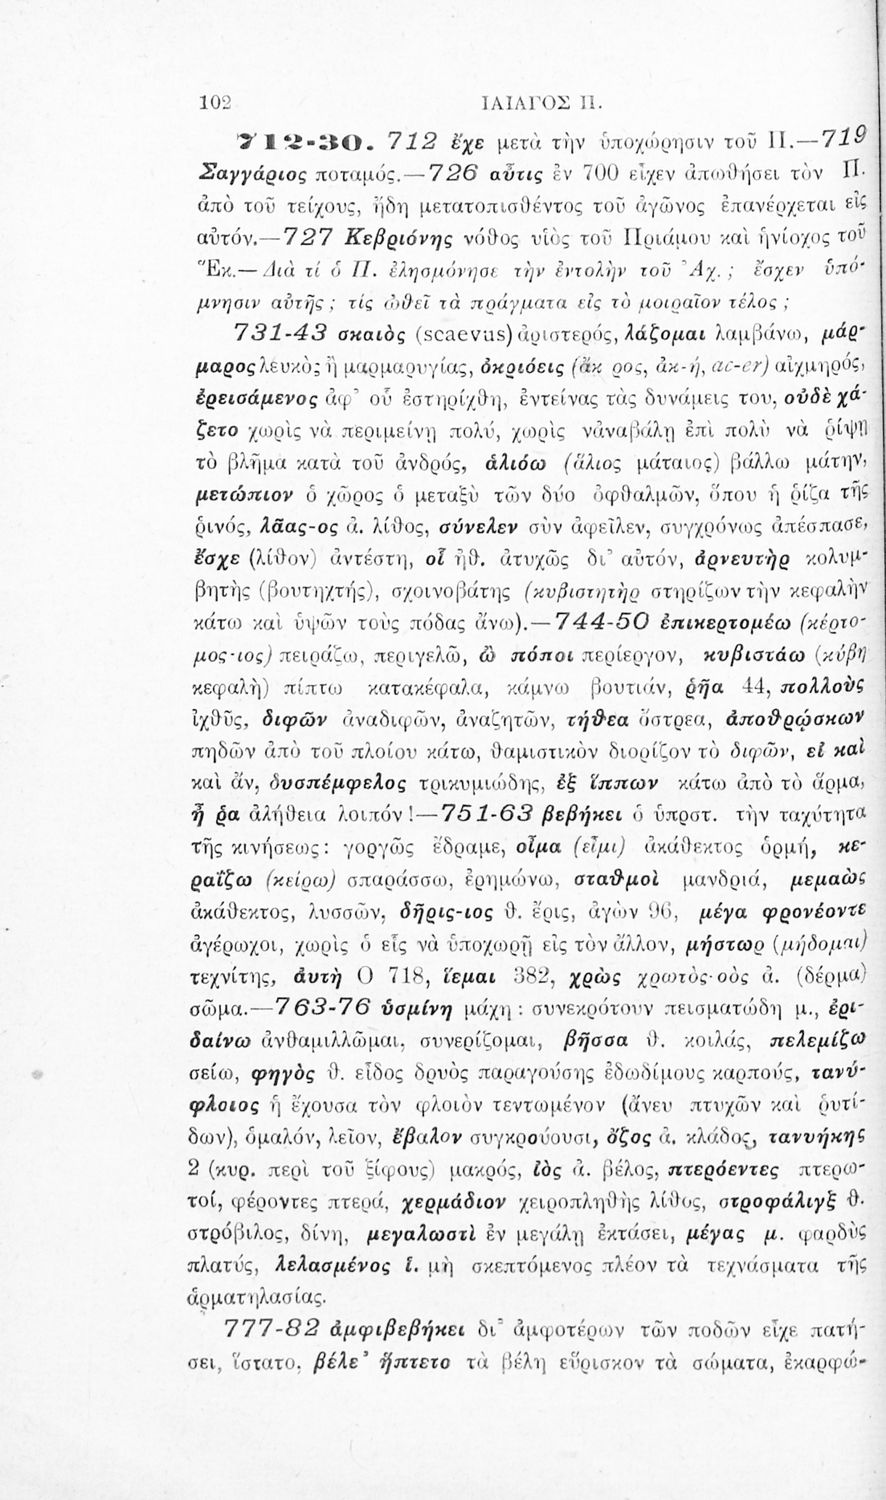 102 ΙΛΙΑΓΟΣ Π.
712-30. 712 ἔχε μετὰ τὴν ὑποχώρησιν τοῦ Π.—719
Σαγγάριος ποταμός.—726 αὖτις ἐν 700 εἶχεν ἀπωθήσει τὸν Π.
ἀπὸ τοῦ τείχους, ἤδη μετατοπισθέντος τοῦ ἀγῶνος ἐπανέρχεται εἰς
αὐτόν.—727 Κεβριόνης νόθος υἱὸς τοῦ Πριάμου καὶ ἡνίοχος τοῦ
Ἕκ.—Διὰ τί ὁ Π. ἐλησμόνησε τὴν ἐντολὴν τοῦ Ἀχ.; ἔσχεν ὑπό-
μνησιν αὐτῆς; τίς ὠθεῖ τὰ πράγματα εἰς τὸ μοιραῖον τέλος;
731-43 σκαιὸς (scaevus) ἀριστερός, λάζομαι λαμβάνω, μάρ-
μαρος λευκὸς ἢ μαρμαρυγίας, ὀκριόεις (ἄκ ρος, ἀκ-ή, ac-er) αἰχμηρός,
ἐρεισάμενος ἀφ' οὗ ἐστηρίχθη, ἐντείνας τὰς δυνάμεις του, οὐδὲ χά-
ζετο χωρὶς νὰ περιμείνῃ πολύ, χωρὶς νἀναβάλῃ ἐπὶ πολὺ νὰ ῥίψῃ
τὸ βλῆμα κατὰ τοῦ ἀνδρός, ἁλιόω (ἅλιος μάταιος) βάλλω μάτην,
μετώπιον ὁ χῶρος ὁ μεταξὺ τῶν δύο ὀφθαλμῶν, ὅπου ἡ ῥίζα τῆς
ῥινός, λᾶας-ος ἀ. λίθος, σύνελεν σὺν ἀφεῖλεν, συγχρόνως ἀπέσπασε,
ἔσχε (λίθον) ἀντέστη, οἷ ἠθ. ἀτυχῶς δι' αὐτόν, ἀρνευτὴρ κολυμ-
βητὴς (βουτηχτής), σχοινοβάτης (κυβιστητὴρ στηρίζων τὴν κεφαλὴν
κάτω καὶ ὑψῶν τοὺς πόδας ἄνω).—744-50 ἐπικερτομέω (κέρτο-
μος-ιος) πειράζω, περιγελῶ, ὢ πόποι περίεργον, κυβιστάω (κύβη
κεφαλὴ) πίπτω κατακέφαλα, κάμνω βουτιάν, ῥῆα 44, πολλοὺς
ἰχθῦς, διφῶν ἀναδιφῶν, ἀναζητῶν, τήθεα ὄστρεα, ἀποθρῴσκων
πηδῶν ἀπὸ τοῦ πλοίου κάτω, θαμιστικὸν διορίζον τὸ διφῶν, εἰ καὶ
καὶ ἄν, δυσπέμφελος τρικυμιώδης, ἐξ ἵππων κάτω ἀπὸ τὸ ἅρμα,
ἦ ῥα ἀλήθεια λοιπόν!—751-63 βεβήκει ὁ ὑπρστ. τὴν ταχύτητα
τῆς κινήσεως: γοργῶς ἔδραμε, οἶμα (εἶμι) ἀκάθεκτος ὁρμή, κε-
ραΐζω (κείρω) σπαράσσω, ἐρημώνω, σταθμοὶ μανδριά, μεμαὼς
ἀκάθεκτος, λυσσῶν, δῆρις-ιος θ. ἔρις, ἀγὼν 96, μέγα φρονέοντε
ἀγέρωχοι, χωρὶς ὁ εἷς νὰ ὑποχωρῇ εἰς τὸν ἄλλον, μήστωρ (μήδομαι)
τεχνίτης, ἀυτὴ Ο 718, ἵεμαι 382, χρὼς χρωτὸς-οὸς ἀ. (δέρμα)
σῶμα.—763-76 ὑσμίνη μάχη: συνεκρότουν πεισματώδη μ., ἐρι-
δαίνω ἀνθαμιλλῶμαι, συνερίζομαι, βῆσσα θ. κοιλάς, πελεμίζω
σείω, φηγὸς θ. εἶδος δρυὸς παραγούσης ἐδωδίμους καρπούς, τανύ-
φλοιος ἡ ἔχουσα τὸν φλοιὸν τεντωμένον (ἄνευ πτυχῶν καὶ ῥυτί-
δων), ὁμαλόν, λεῖον, ἔβαλον συγκρούουσι, ὄζος ἀ. κλάδος, τανυήκης
2 (κυρ. περὶ τοῦ ξίφους) μακρός, ἰὸς ἀ. βέλος, πτερόεντες πτερω-
τοί, φέροντες πτερά, χερμάδιον χειροπληθὴς λίθος, στροφάλιγξ θ.
στρόβιλος, δίνη, μεγαλωστὶ ἐν μεγάλῃ ἐκτάσει, μέγας μ. φαρδὺς
πλατύς, λελασμένος ἱ. μὴ σκεπτόμενος πλέον τὰ τεχνάσματα τῆς
ἁρματηλασίας.
777-82 ἀμφιβεβήκει δι' ἀμφοτέρων τῶν ποδῶν εἶχε πατή-
σει, ἵστατο, βέλε' ἥπτετο τὰ βέλη εὕρισκον τὰ σώματα, ἐκαρφώ-